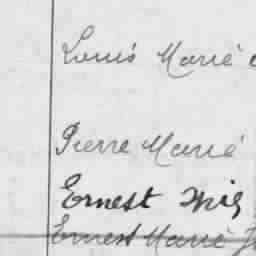 Louis Marié
Pierre Marié
Ernest
Ernest Marié